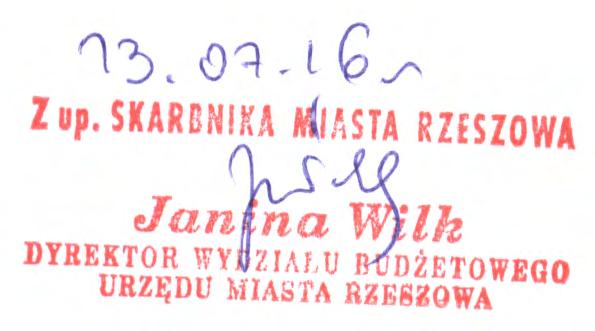 13.07.16r
Z up. SKARBNIKA MIASTA RZESZOWA
Janina Wilk
DYREKTOR WYDZIAŁU BUDŻETOWEGO
URZĘDU MIASTA RZESZOWA